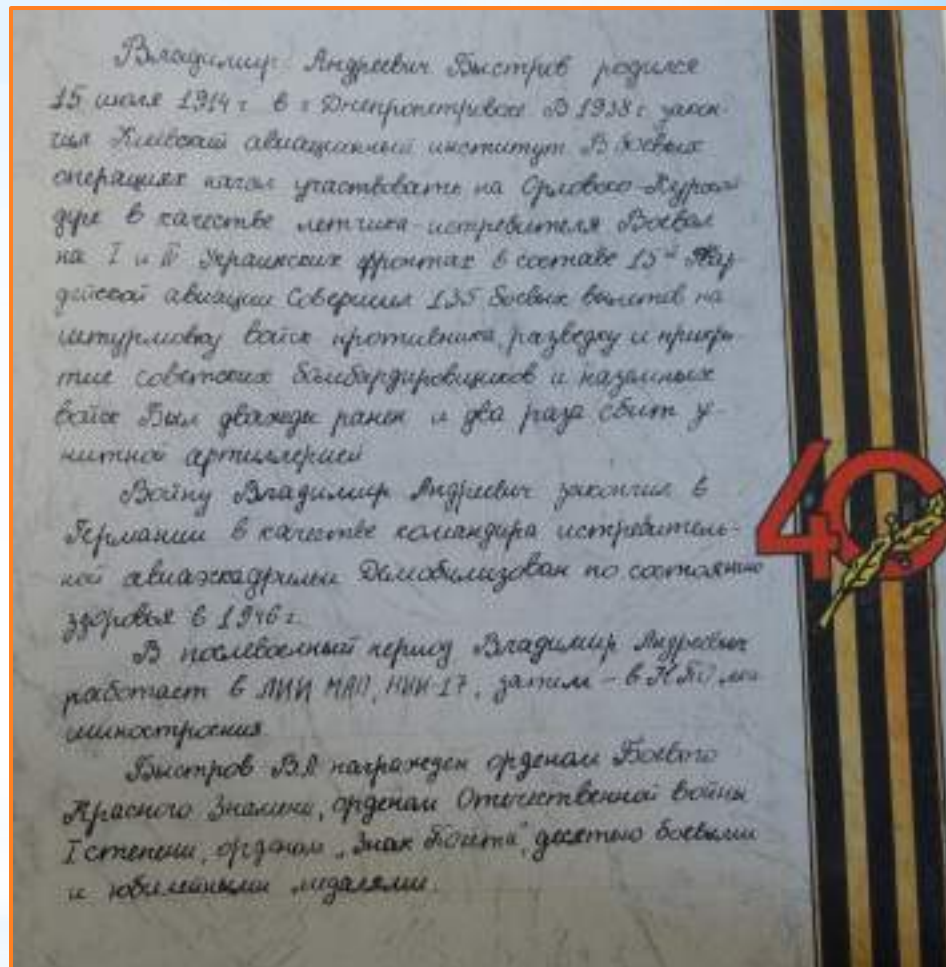 Владимир Андреевич Быстров родился
15 июля 1914 г. в г. Днепропетровске. В 1938 г. закон-
чил Киевский авиационный институт. В боевых
операциях начал участвовать на Орловско-Курской
дуге в качестве летчика-истребителя. Воевал
на I и II Украинских фронтах в составе 15й Гвар-
дейской авиации. Совершил 135 боевых вылетов на
штурмовку войск противника, разведку и прикры-
тие советских бомбардировщиков и наземных
войск. Был дважды ранен и два раза сбит
артиллерией
Войну Владимир Андреевич закончил в
Германии в качестве командира истребитель-
ной авиаэскадрильи. Демобилизован по состоянию
здоровья в 1946 г.
В послевоенный период Владимир Андреевич
работает в ЛИИ МАП, НИИ-17, затем - в
шиностроения.
Быстров В.А. награжден орденом Боевого
Красного Знамени, орденом Отечественной войны
I степени, орденом "Знак Почета", десятью боевыми
и юбилейными медалями.
40